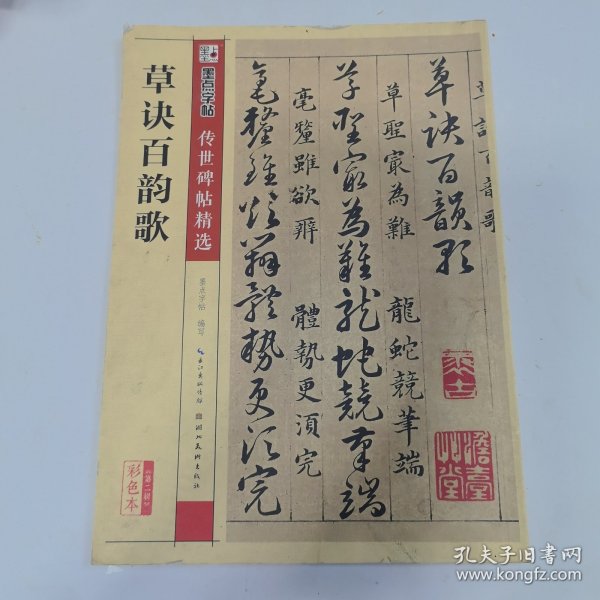 草诀百韵歌
墨点字帖
传世碑帖精选
墨点字帖 编写
长江出版传媒
湖北美术出版社
彩色本
第二辑
草诀百韵歌
草聖寂為難 龍蛇競筆端
草聖寂為難龍蛇競筆端
毫釐雖欲辨 體勢更須完
毫釐雖欲辨體勢更須完
孔夫子旧书网
www.kongfz.com